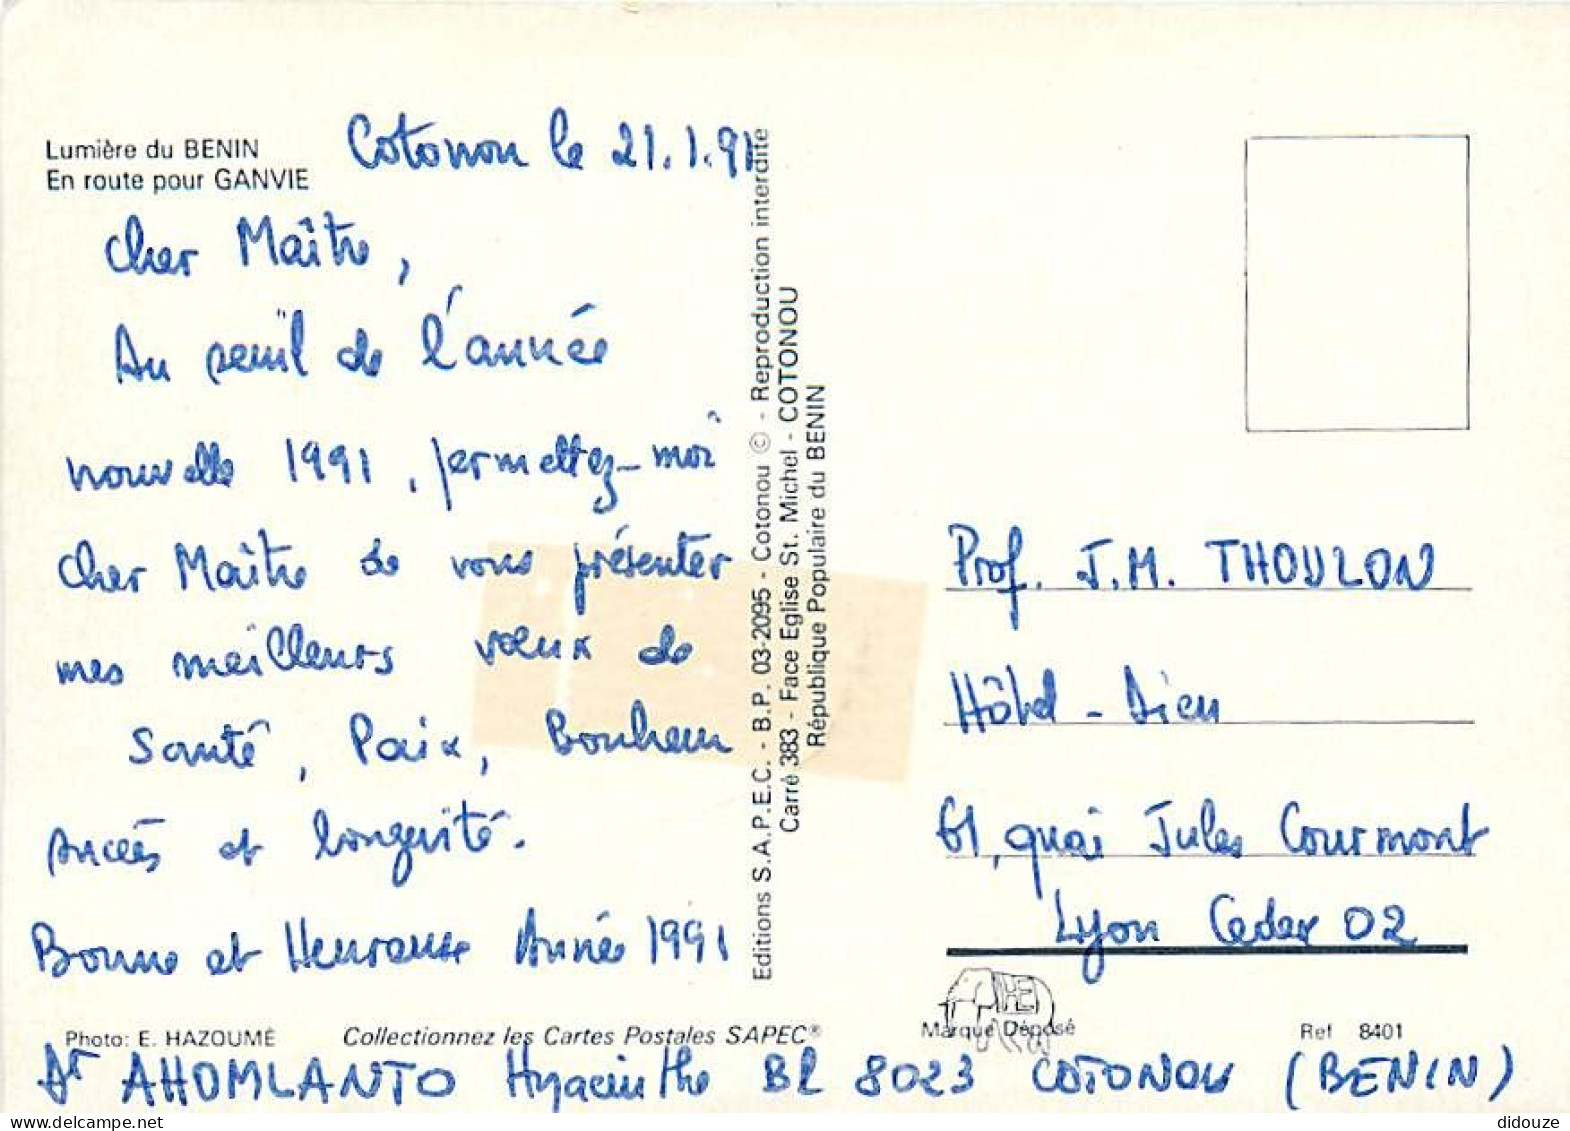 Lumière du BENIN
En route pour GANVIE
Cotonou le 21.1.91
Cher Maître,
Au seuil de l'année
nouvelle 1991, permettez-moi
Cher Maître de vous présenter
mes meilleurs vœux de
Santé, Paix, Bonheur
succès et longévité.
Bonne et Heureuse Année 1991
Photo: E. HAZOUMÉ
Collectionnez les Cartes Postales SAPEC®
Dr AHOMLANTO Hyacinthe BP 8023 COTONOU (BENIN)
Editions S.A.P.E.C. - B.P. 03-2095 - Cotonou © - Reproduction interdite
Carré 383 - Face Eglise St. Michel - COTONOU
République Populaire du BENIN
Prof. J.M. THOULON
Hôtel-Dieu
61, quai Jules Courmont
Lyon Cedex 02
Marque Déposé
Ref 8401
didouze